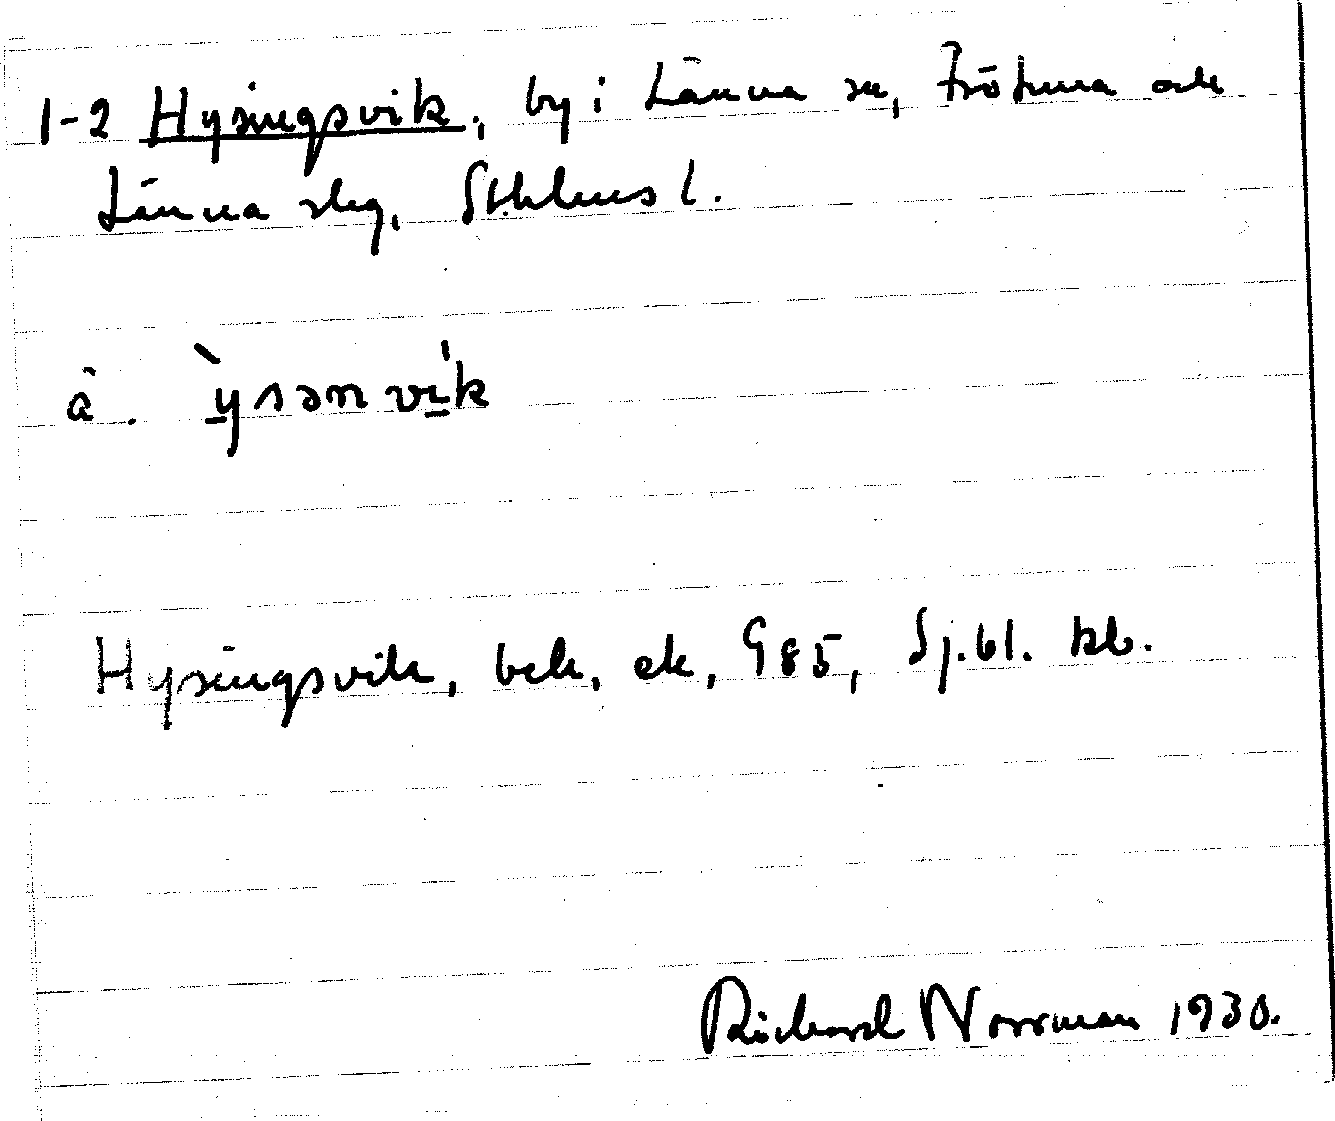 1-2 Hysingsvik, by i Länna sn, Frötuna och
Länna slg, Sthlms l.
â. `ysənvi̱k
Hysingsvik, bek, ek, G85, Sj.bl. kb.
Richard Norrman 1930.